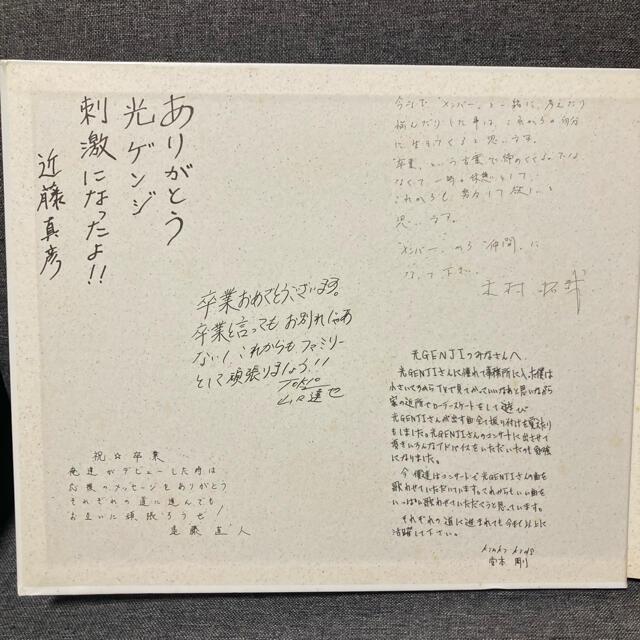 ありがとう
光ゲンジ
刺激になったよ!!
近藤真彦
今まで“メンバー”と一緒に、考えたり
悩んだりした事は、これからの自分
に生きてくると思います。
“卒業”という言葉で
なくて一時の休憩として、
これからも、努力して欲しいと
思います。
“メンバー”から“仲間”に
なって下さい。
木村拓哉
卒業おめでとうございます。
卒業と言ってもお別れじゃあ
ない!これからもファミリー
として頑張りましょう!!
TOKIO
山口達也
祝☆卒業
俺達がデビューした時は
応援のメッセージをありがとう
それぞれの道に進んでも
お互いに頑張ろうぜ!
遠藤直人
光GENJIのみなさんへ
光GENJIさんに憧れて事務所に入った僕は
小さいころからTVで見てかっていいなあと思いながら
家の近所でローラースケートをして遊び
光GENJIさんが出す曲全て振り付けを覚えたり
もしました。光GENJIさんのコンサートに出させて
頂きいろんなアドバイスをいただいたのも勉強
になりました。
今、僕達はコンサートで光GENJIさんの曲を
歌わせていただいています。これからもいい曲を
いっぱい歌わせていただこうと思っています。
それぞれの道に進まれても今まで以上に
活躍して下さい。
kinki kids
堂本剛